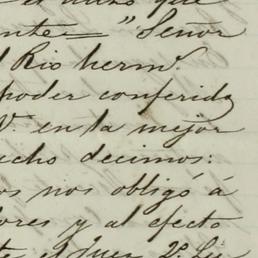 que
ente=" Señor
l Rio herm.
poder conferido
V. en la mejor
echo decimos:
os nos obligó á
ores y al efecto
te el Juez 2º Lu